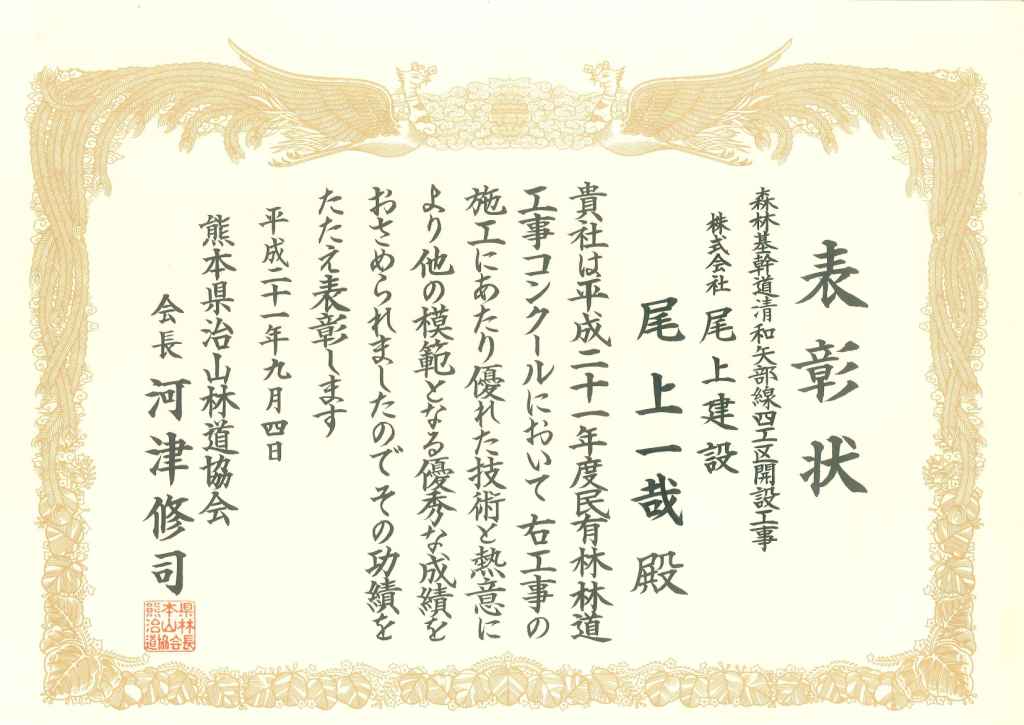 表彰状
森林基幹道清和矢部線四工区開設工事
株式会社 尾上建設
尾上一哉殿
貴社は平成二十一年度民有林林道
工事コンクールにおいて右工事の
施工にあたり優れた技術と熱意に
より他の模範となる優秀な成績を
おさめられましたのでその功績を
たたえ表彰します
平成二十一年九月四日
熊本県治山林道協会
会長 河津修司
熊本県治山林道協会長